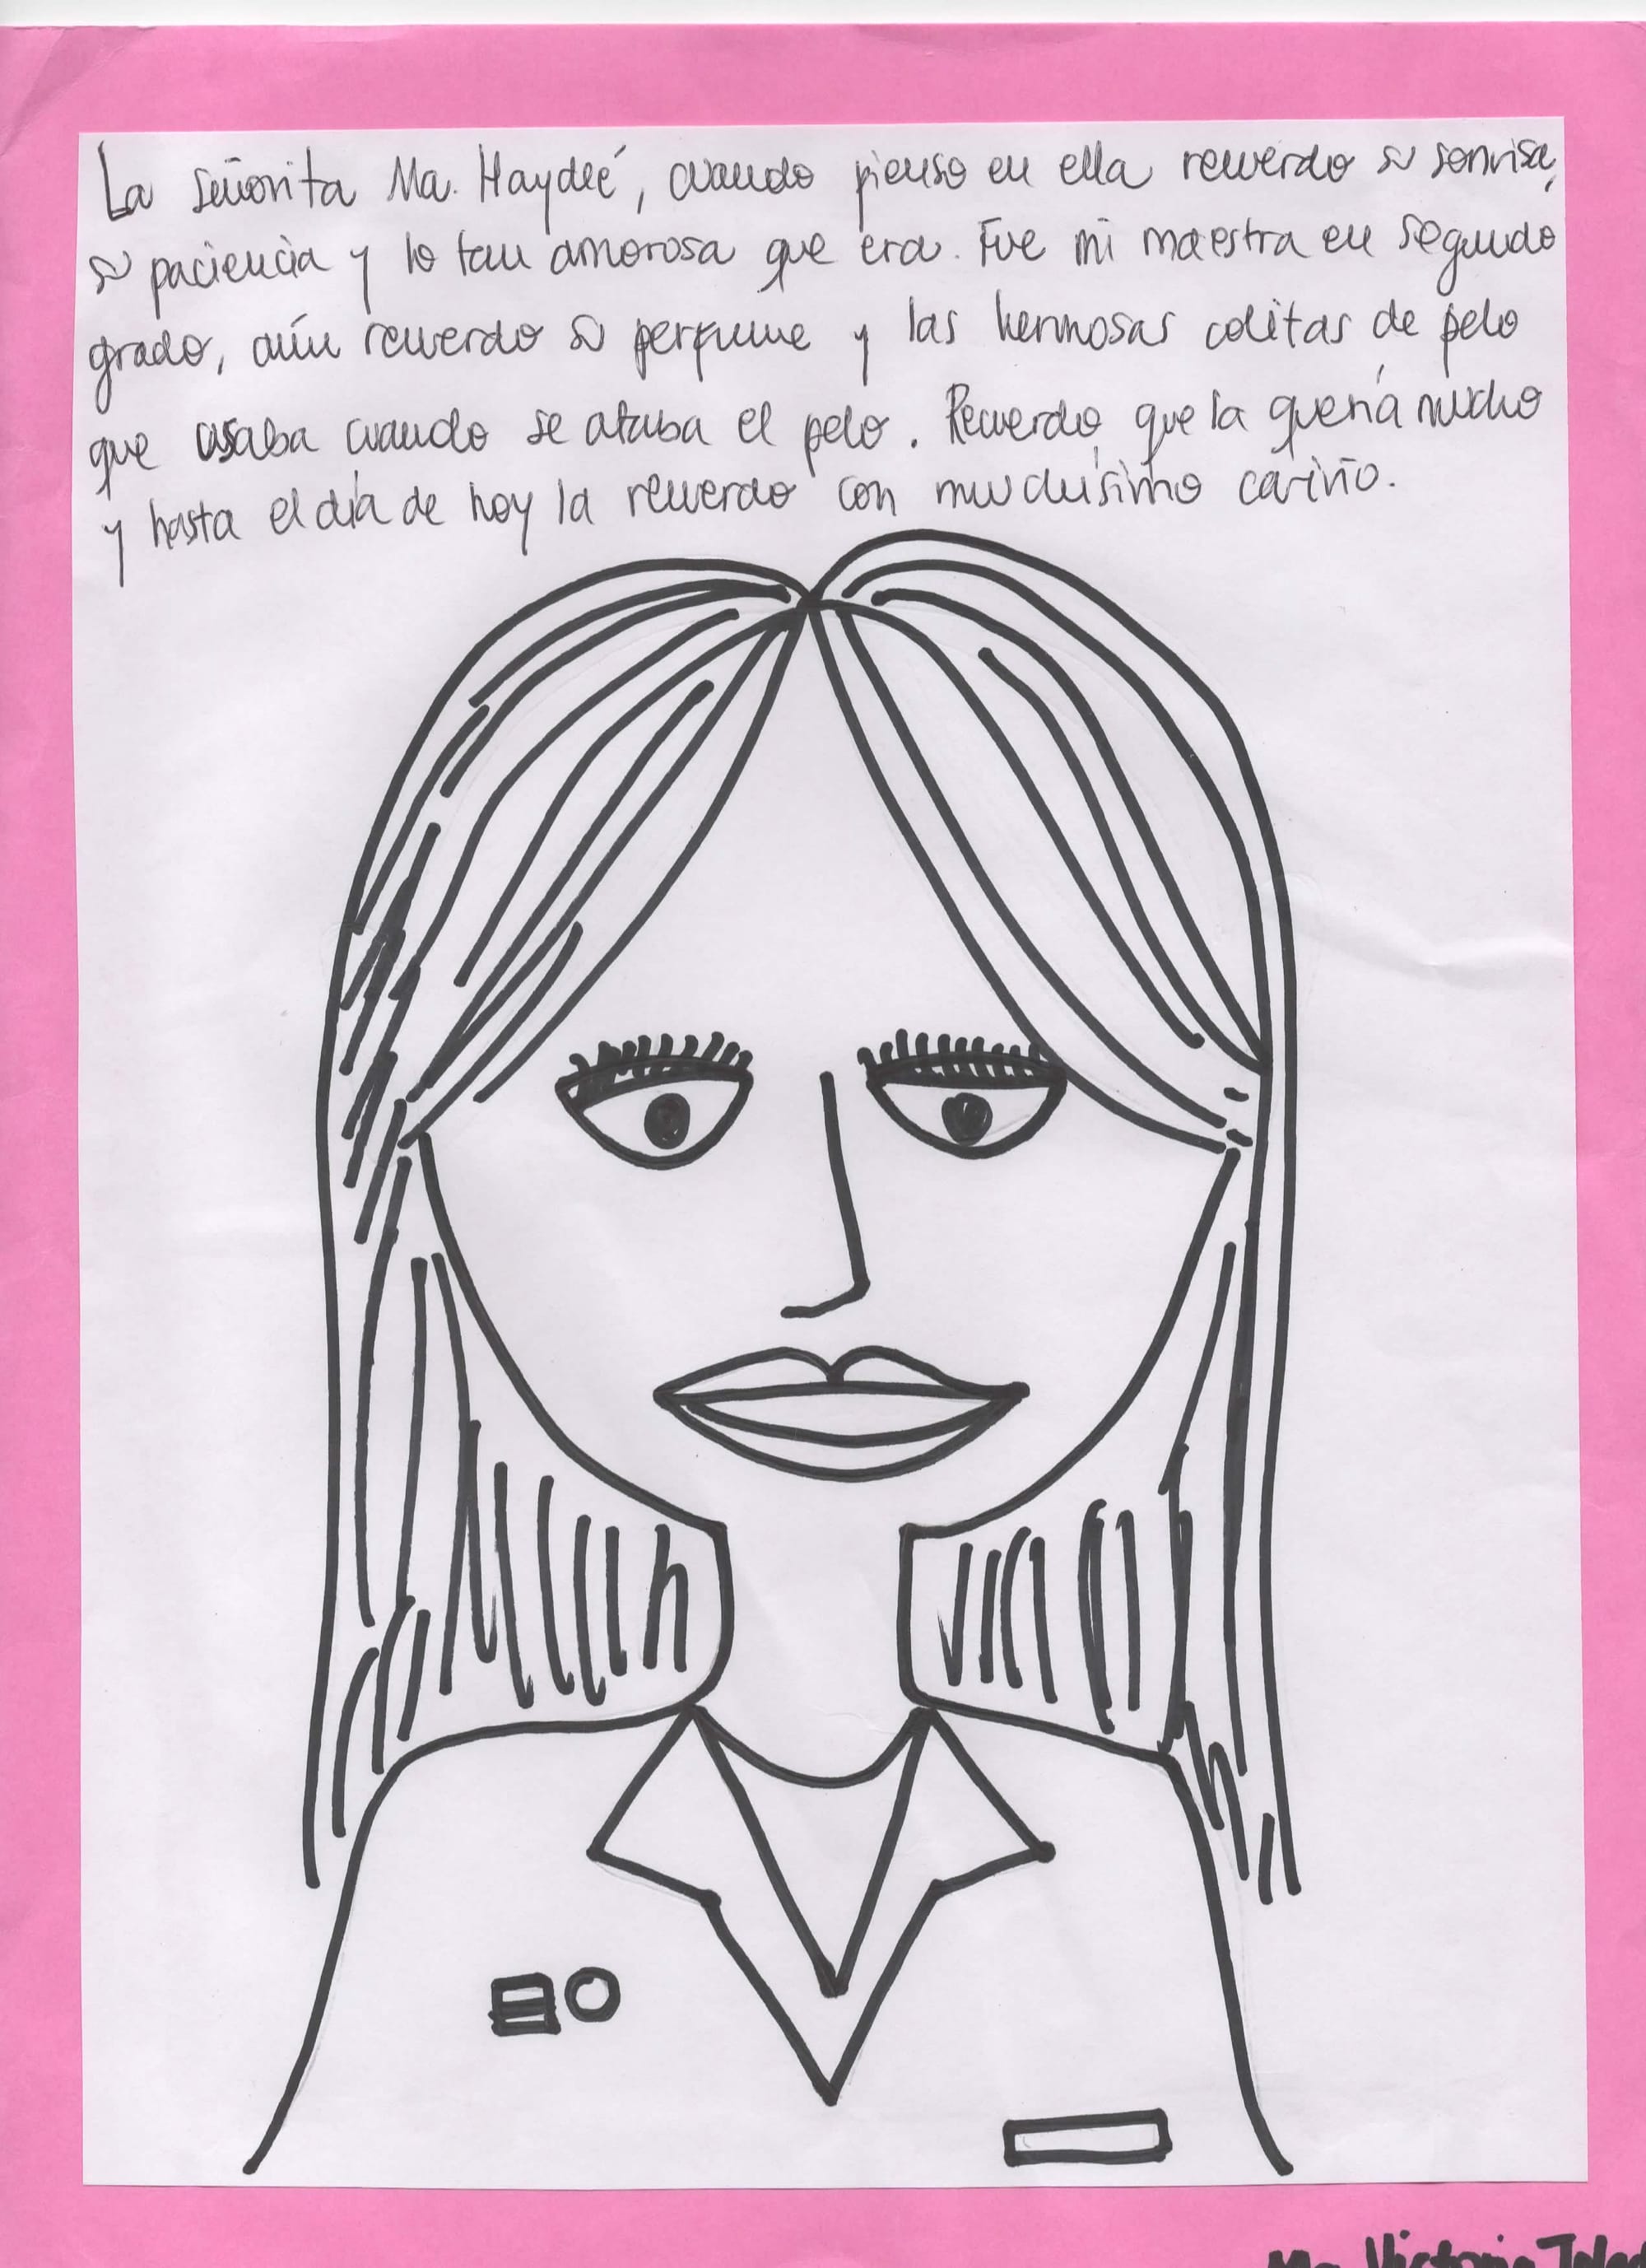 La señorita Ma. Haydeé, cuando pienso en ella recuerdo su sonrisa,
su paciencia y lo tan amorosa que era. Fue mi maestra en segundo
grado, aún recuerdo su perfume y las hermosas colitas de pelo
que usaba cuando se ataba el pelo. Recuerdo que la quería mucho
y hasta el día de hoy la recuerdo con muchísimo cariño.
Ma. Victoria